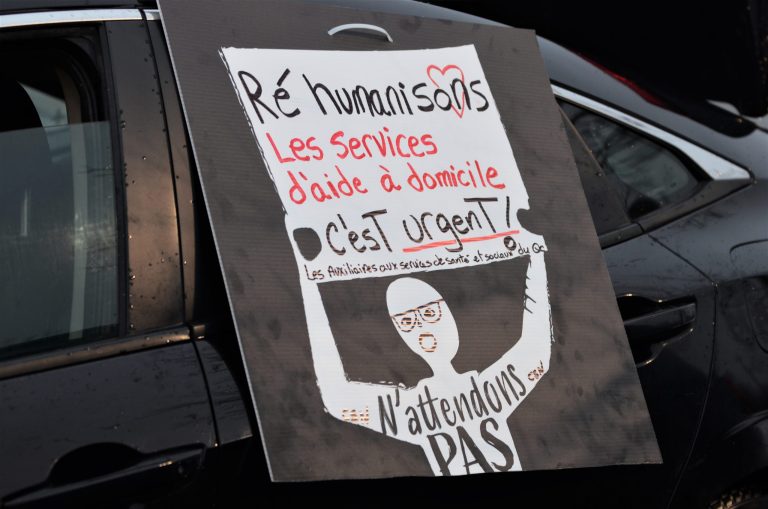 Ré humanisons
Les services
d'aide à domicile
C'EST URGENT!
Les Auxiliaires aux services de santé et sociaux du Qc
N'attendons
PAS